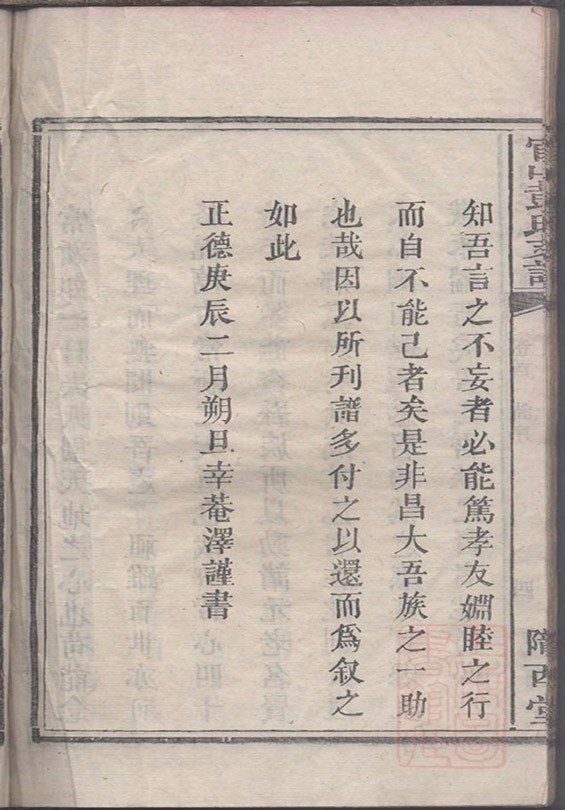 知吾言之不妄者必能篤孝友婣睦之行
而自不能已者矣是非昌大吾族之一助
也哉因以所刊譜多付之以還而爲叙之
如此
正德庚辰二月朔旦幸菴澤謹書
彭氏支譜
四
隴西堂